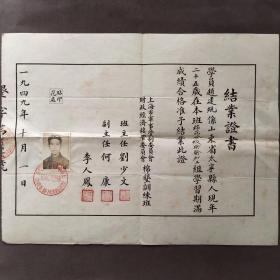 結業證書
學員趙建珉像山東省太寧縣人現年
二十五歲在本班 組學習期滿
成績合格准予結業此證
上海市軍事管制委員會
財政經濟接管委員會
棉墾訓練班
班主任劉少文
副主任何康
李人鳳
一九四九年十月一日
貼印
花處